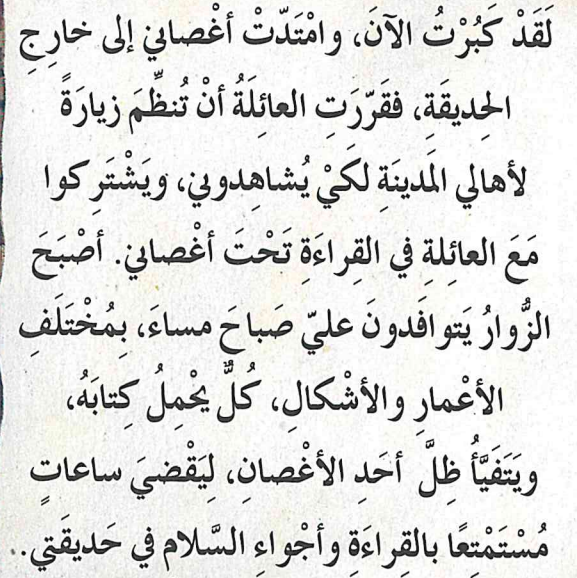 لَقَدْ كَبُرْتُ الآنَ، وامْتَدّتْ أغْصاني إلى خارِجِ
الحِديقَةِ، فقَرّرَتِ العائِلَةُ أنْ تُنظِّمَ زيارَةً
لأهالي المَدينَةِ لكَيْ يُشاهِدوني، ويَشْتَرِكوا
مَعَ العائِلةِ في القِراءَةِ تَحْتَ أغْصاني. أصْبَحَ
الزُّوارُ يَتوافَدونَ عليّ صَباحَ مساءَ، بِمُخْتَلَفِ
الأعْمارِ والأشْكالِ، كُلٌّ يحْمِلُ كِتابَهُ،
ويَتَفَيَّأُ ظِلَّ أحَدِ الأغْصانِ، لِيَقْضيَ ساعاتٍ
مُسْتَمْتِعًا بالقِراءَةِ وأجْواءِ السَّلام في حَديقَتي..